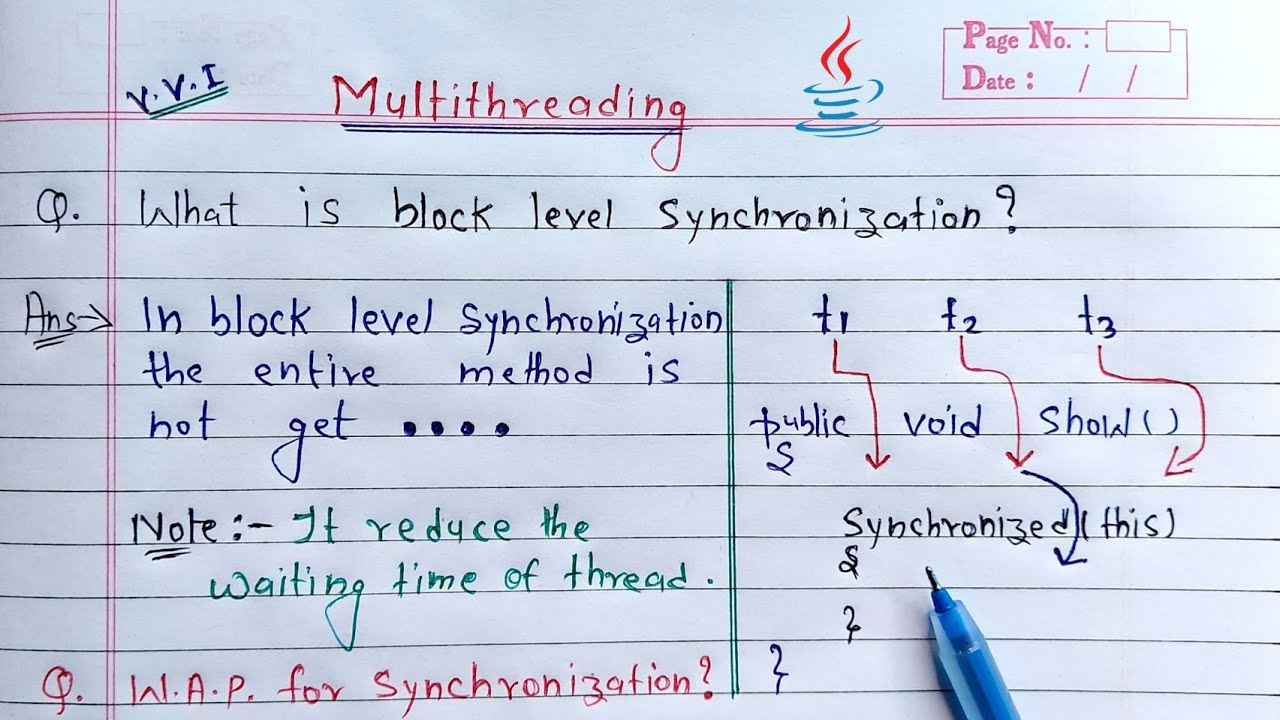 Page No. :
Date : / /
V.V.I
Multithreading
Q. What is block level Synchronization?
Ans→ In block level Synchronization
the entire method is
not get ....
Note:- It reduce the
waiting time of thread.
t1 t2 t3
public void Show()
{
Synchronized(this)
{
}
}
Q. W.A.P. for Synchronization?